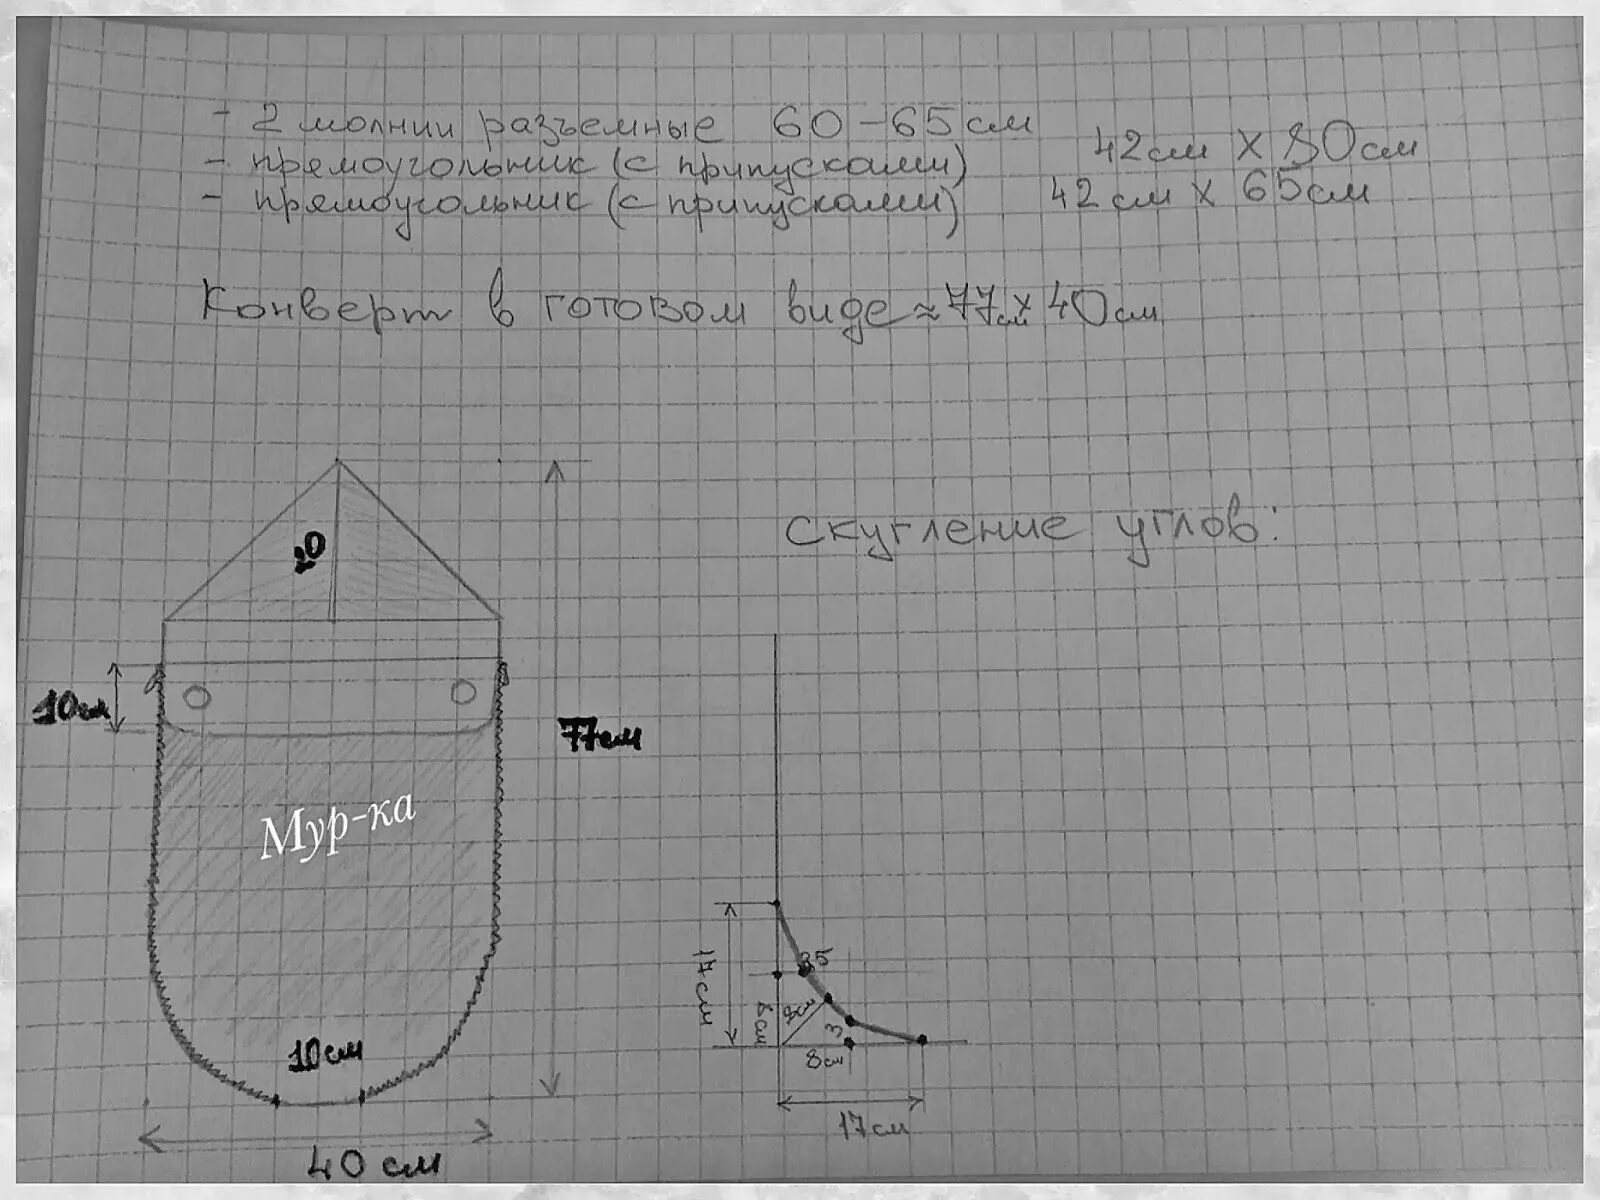 - 2 молнии разъемные 60-65см
- прямоугольник (с припусками) 42см х 80см
- прямоугольник (с припусками) 42см х 65см
Конверт в готовом виде ≈ 77см х 40см
Скругление углов:
20
10см
77см
Мур-ка
10см
40 см
17см
3,5
8см
8см
3
8см
17см